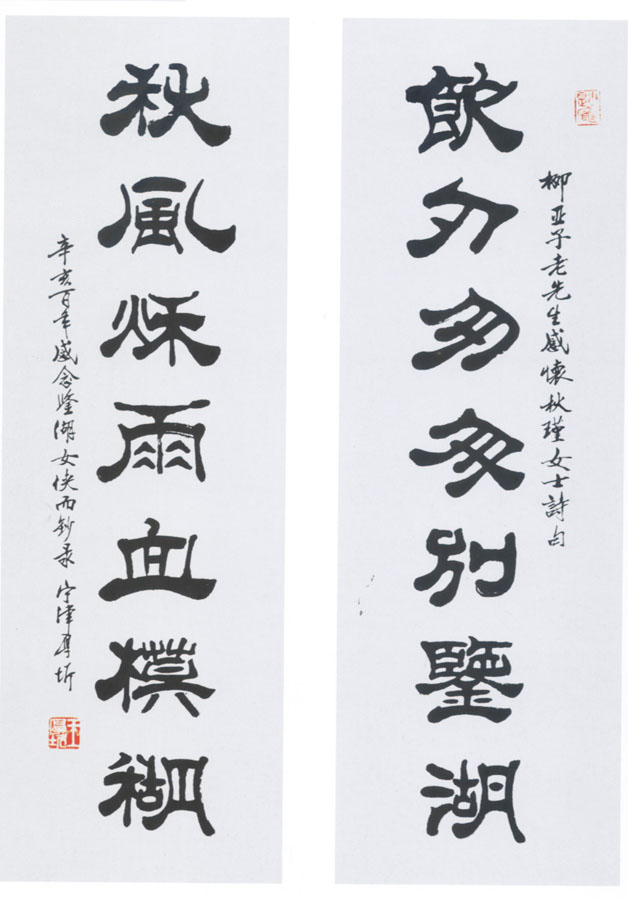 柳亚子老先生感懷秋瑾女士詩句
飲刃匆匆別鑒湖
秋風秌雨血模糊
辛亥百年感念鑒湖女侠而鈔录 宁津